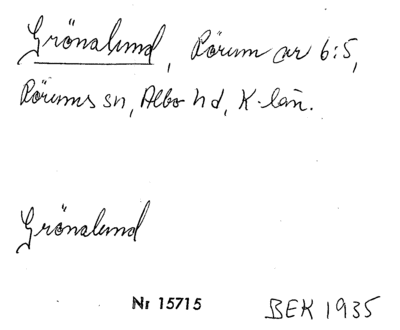 Grönalund, Rörum ar 6:5,
Rörums sn, Albo hd, K-län.
Grönalund
Nr 15715
BEK 1935